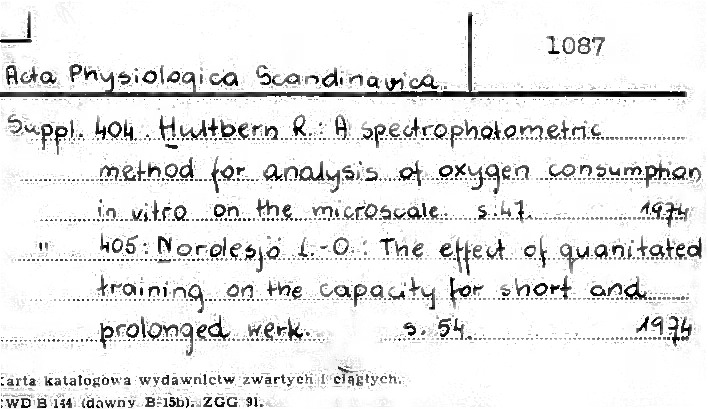 1087
Acta Physiologica Scandinavica.
Suppl. 404. Hultbern R.: A spectrophotometric
method for analysis of oxygen consumption
in vitro on the microscale. s.47. 1974
" 405: Nordesjö L.-O.: The effect of quanitated
training on the capacity for short and
prolonged werk. s. 54. 1974
Karta katalogowa wydawnictw zwartych i ciągłych.
WD B 144 (dawny B-15b). ZGG 91.